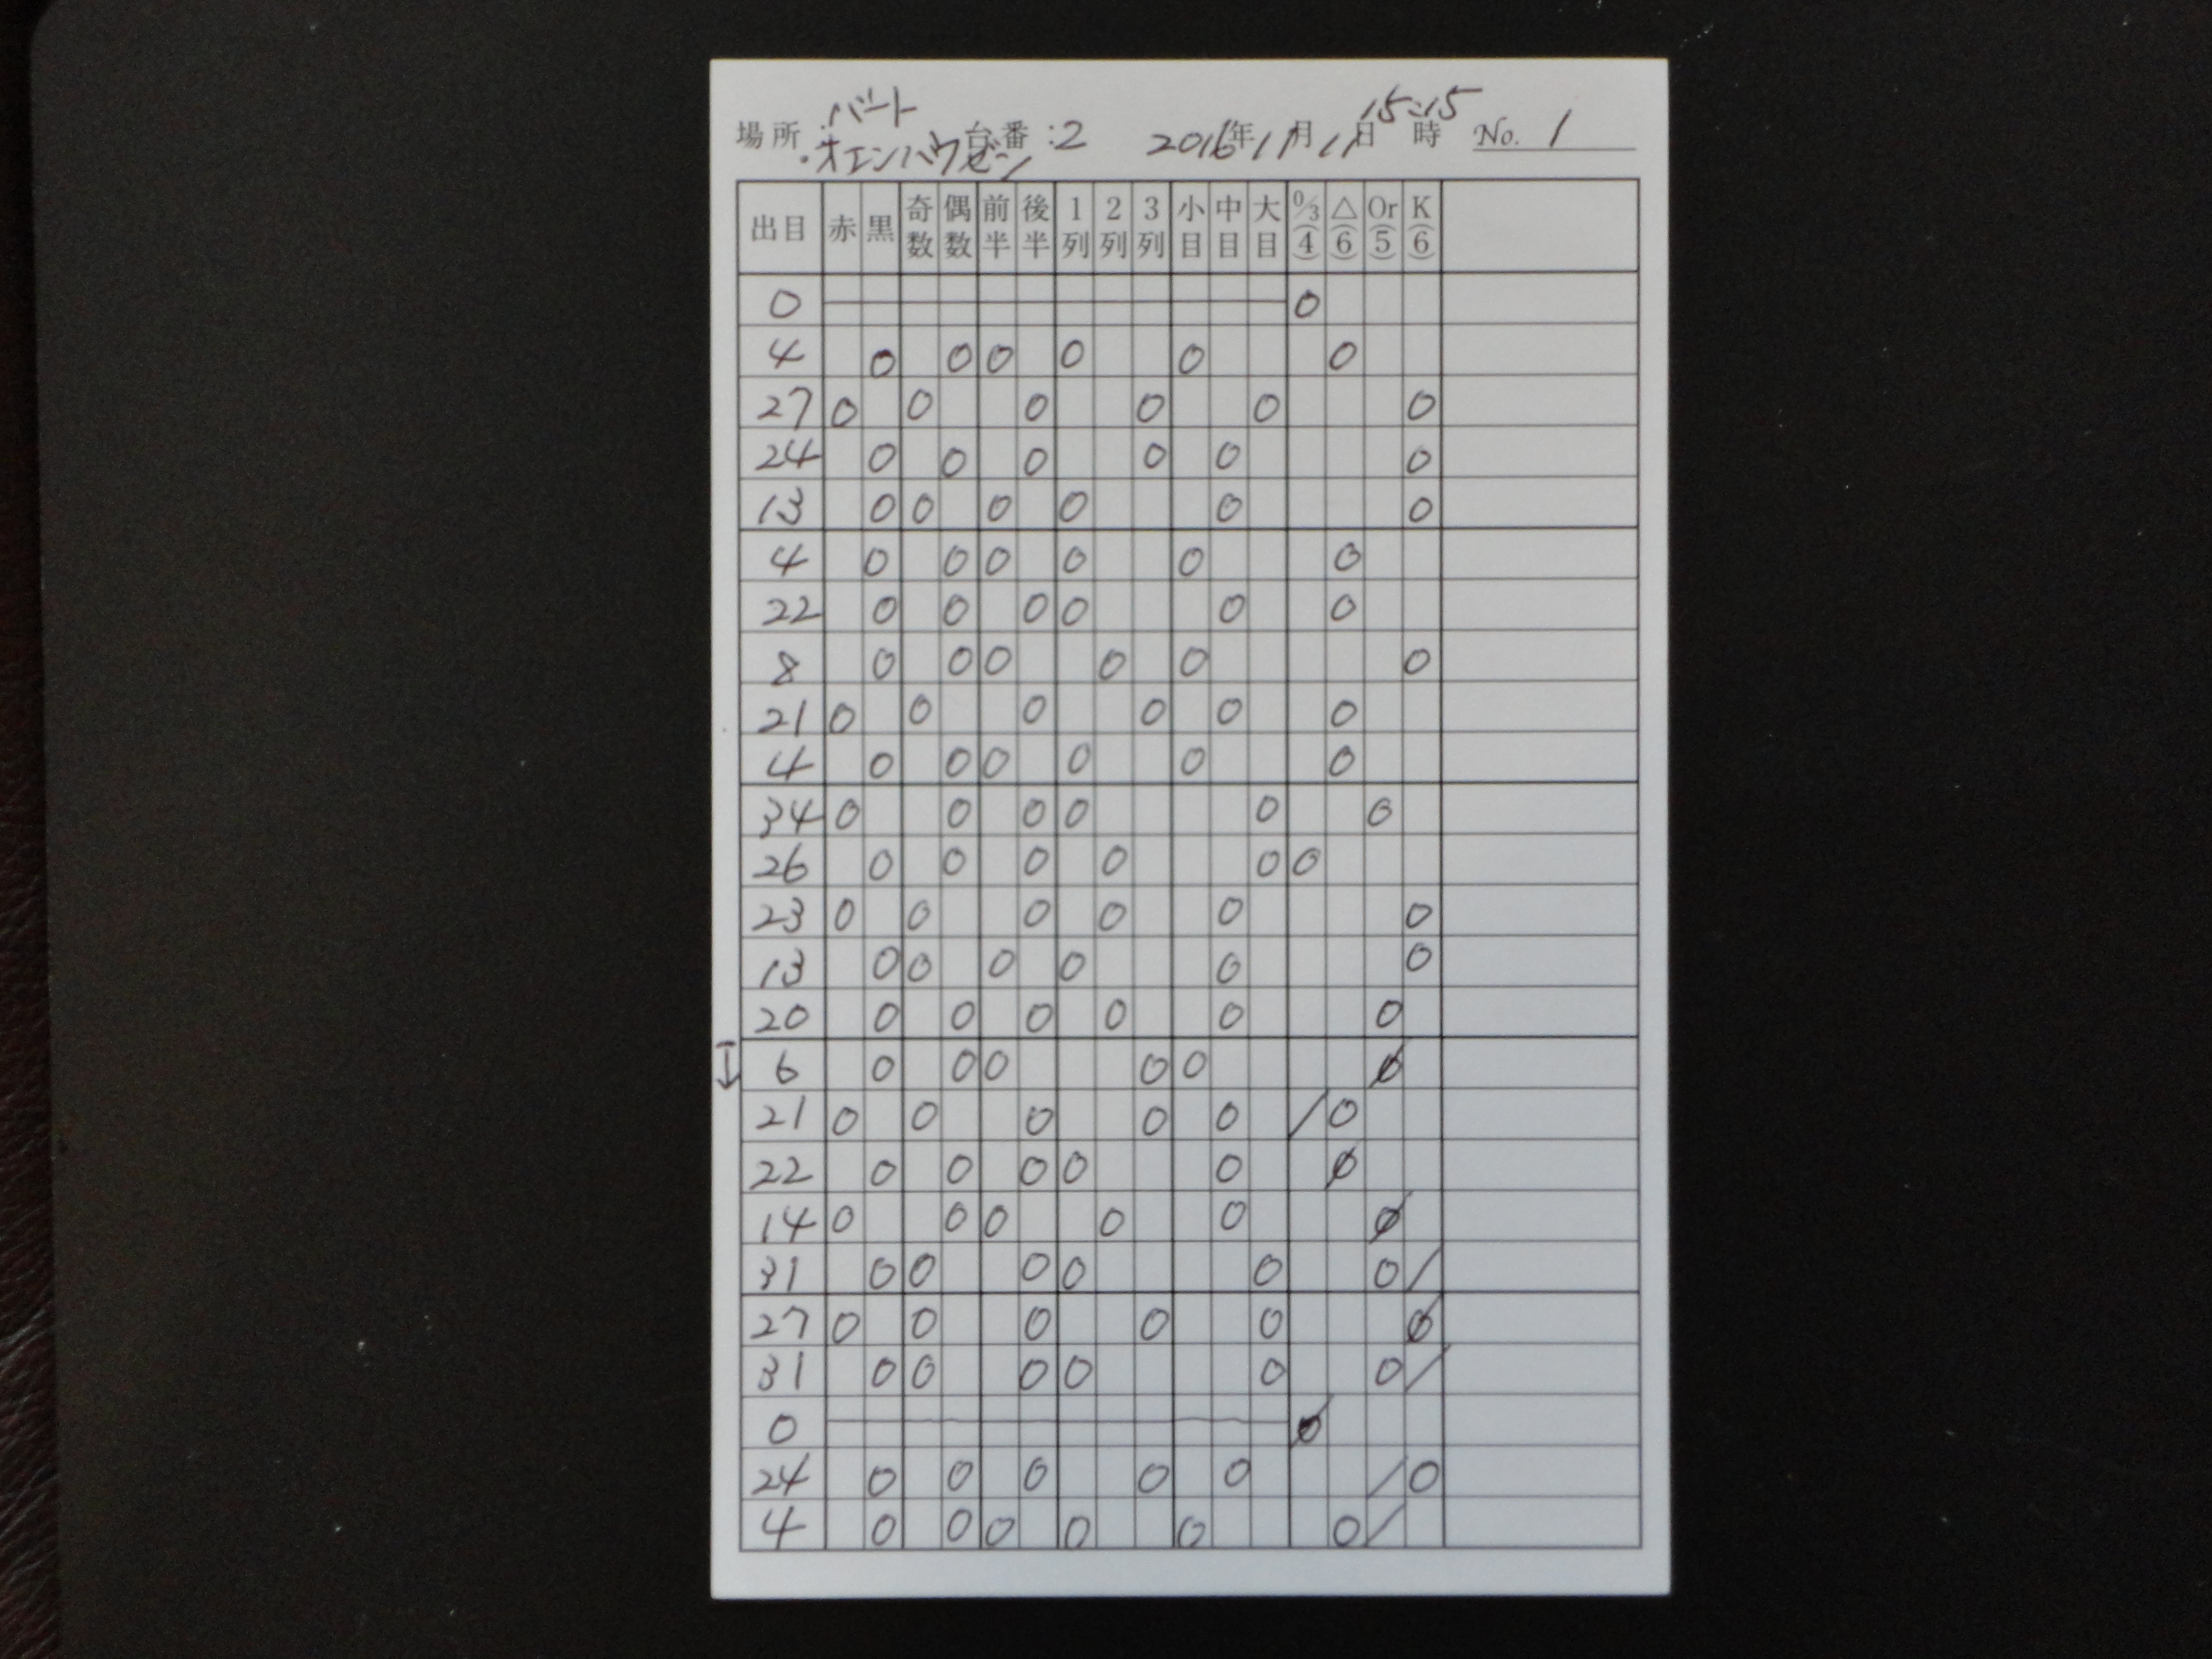 場所:バート・オエンハウゼン 台番:2 2016年11月11日15:15時 No. 1
出目 赤 黒 奇数 偶数 前半 後半 1列 2列 3列 小目 中目 大目 0/3(4) △(6) Or(5) K(6)
0 0
4 0 0 0 0 0 0
27 0 0 0 0 0 0
24 0 0 0 0 0 0
13 0 0 0 0 0 0
4 0 0 0 0 0 0
22 0 0 0 0 0 0
8 0 0 0 0 0 0
21 0 0 0 0 0 0
4 0 0 0 0 0 0
34 0 0 0 0 0 0
26 0 0 0 0 0 0
23 0 0 0 0 0 0
13 0 0 0 0 0 0
20 0 0 0 0 0 0
↓ 6 0 0 0 0 0 Ø
21 0 0 0 0 0 / 0
22 0 0 0 0 0 Ø
14 0 0 0 0 0 Ø
31 0 0 0 0 0 0 /
27 0 0 0 0 0 Ø
31 0 0 0 0 0 0 /
0 Ø
24 0 0 0 0 0 / 0
4 0 0 0 0 0 0 /